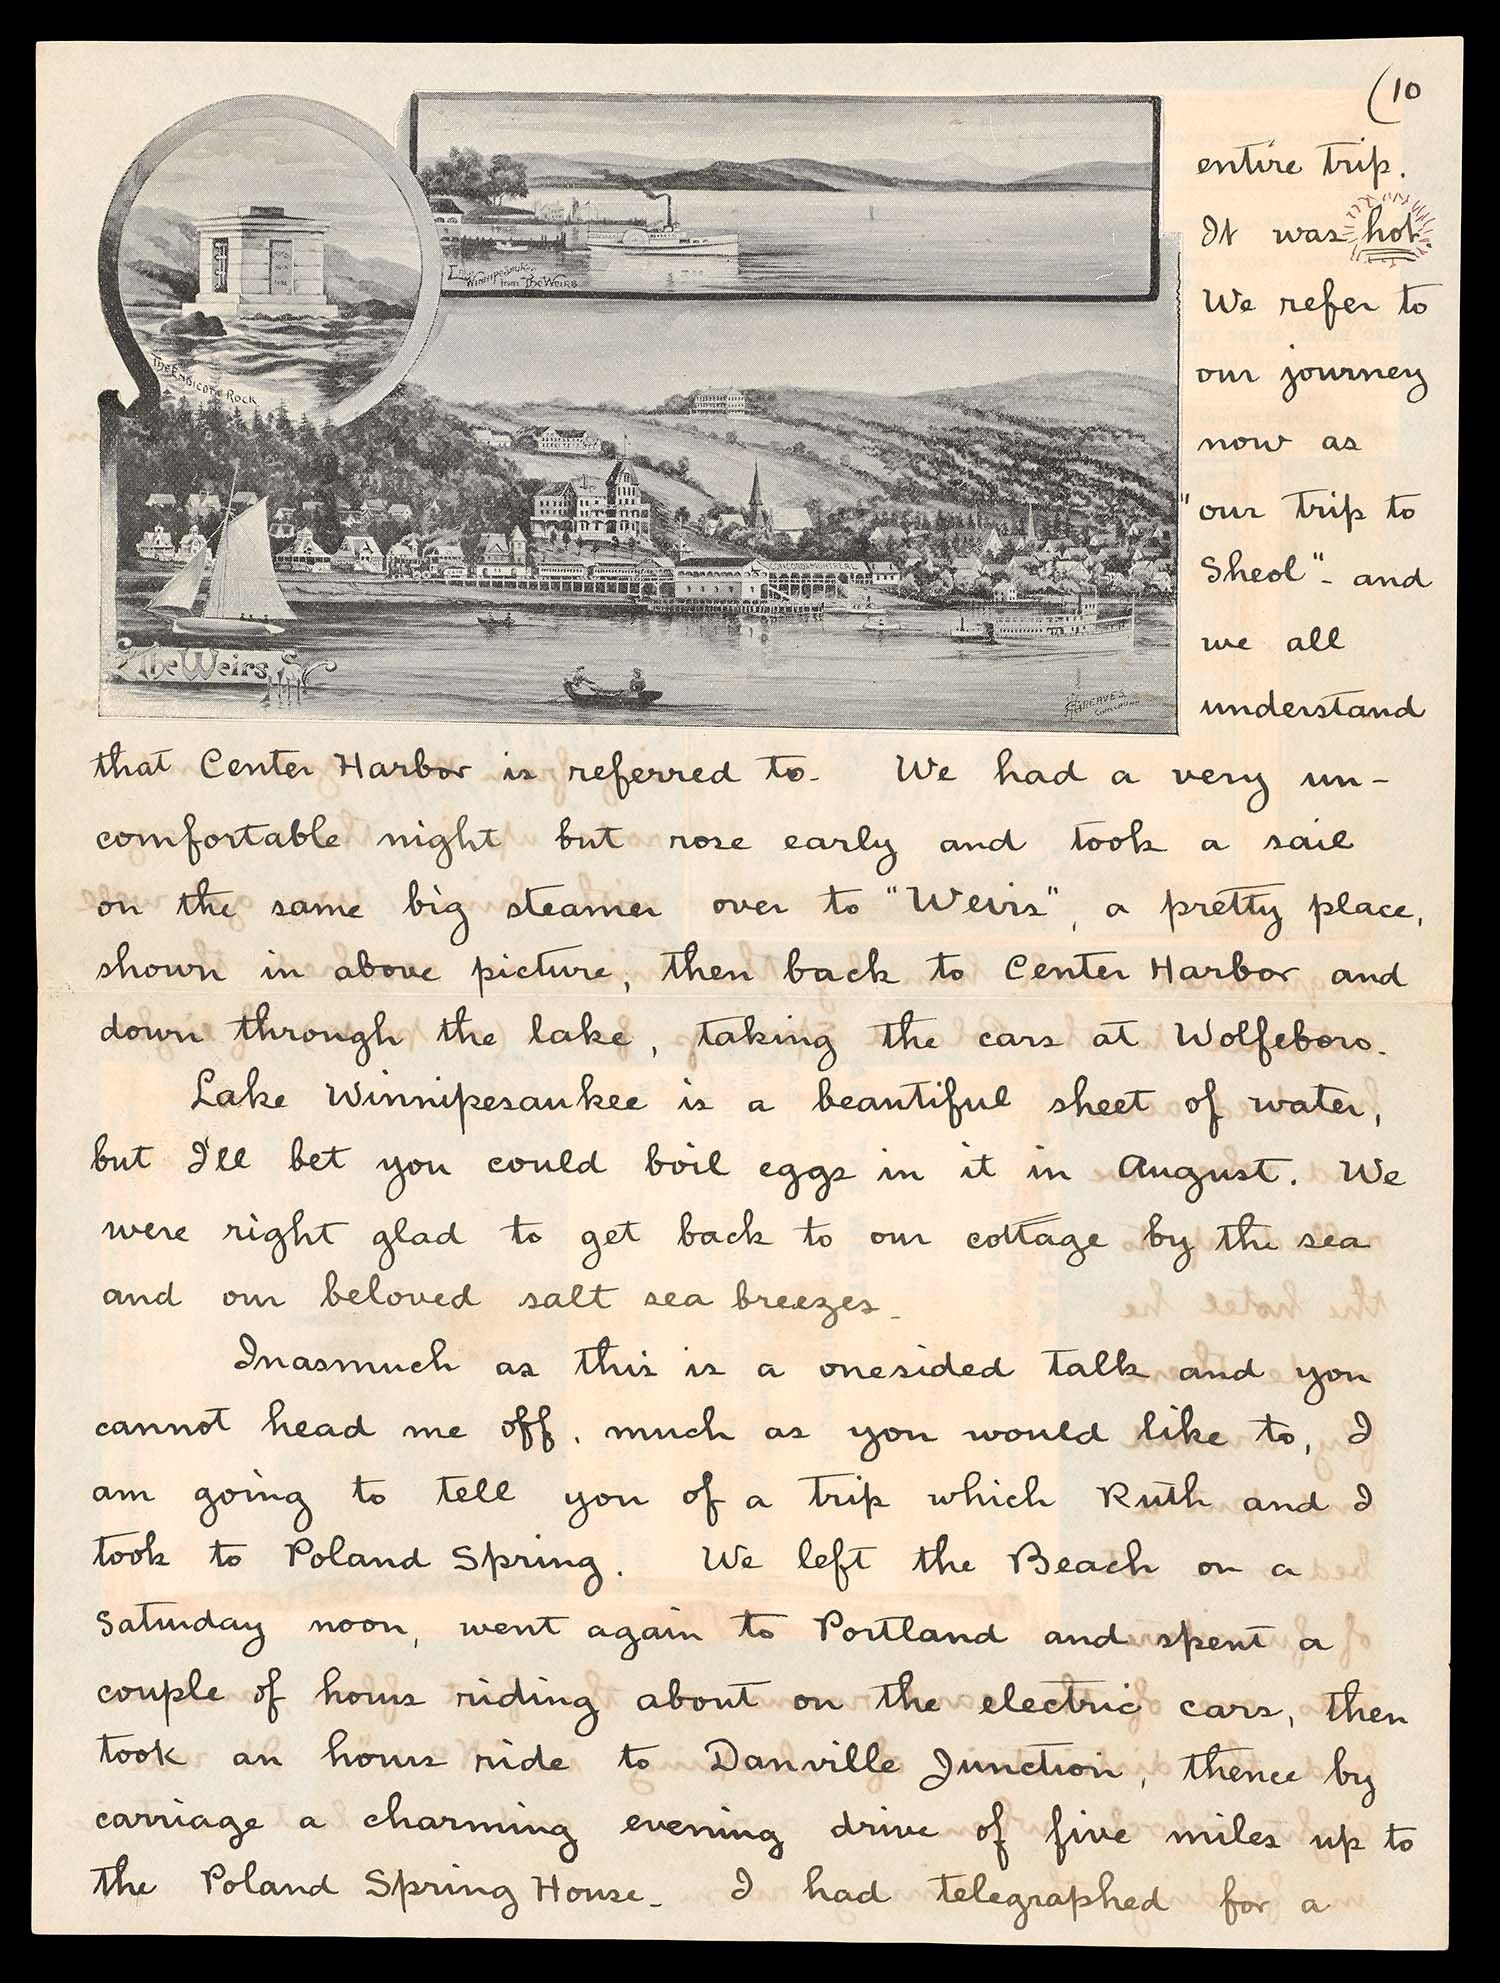 (10
The Endicott Rock
Lake Winnipesaukee
from The Weirs
CONCORD & MONTREAL
The Weirs,
N.H.
entire trip.
It was hot.
We refer to
our journey
now as
"our trip to
Sheol"- and
we all
understand
that Center Harbor is referred to. We had a very un-
comfortable night but rose early and took a sail
on the same big steamer over to "Weirs", a pretty place,
shown in above picture, then back to Center Harbor and
down through the lake, taking the cars at Wolfeboro.
Lake Winnipesaukee is a beautiful sheet of water,
but I'll bet you could boil eggs in it in August. We
were right glad to get back to our cottage by the sea
and our beloved salt sea breezes.
Inasmuch as this is a onesided talk and you
cannot head me off, much as you would like to, I
am going to tell you of a trip which Ruth and I
took to Poland Spring. We left the Beach on a
Saturday noon, went again to Portland and spent a
couple of hours riding about on the electric cars, then
took an hours ride to Danville Junction, thence by
carriage a charming evening drive of five miles up to
the Poland Spring House. I had telegraphed for a